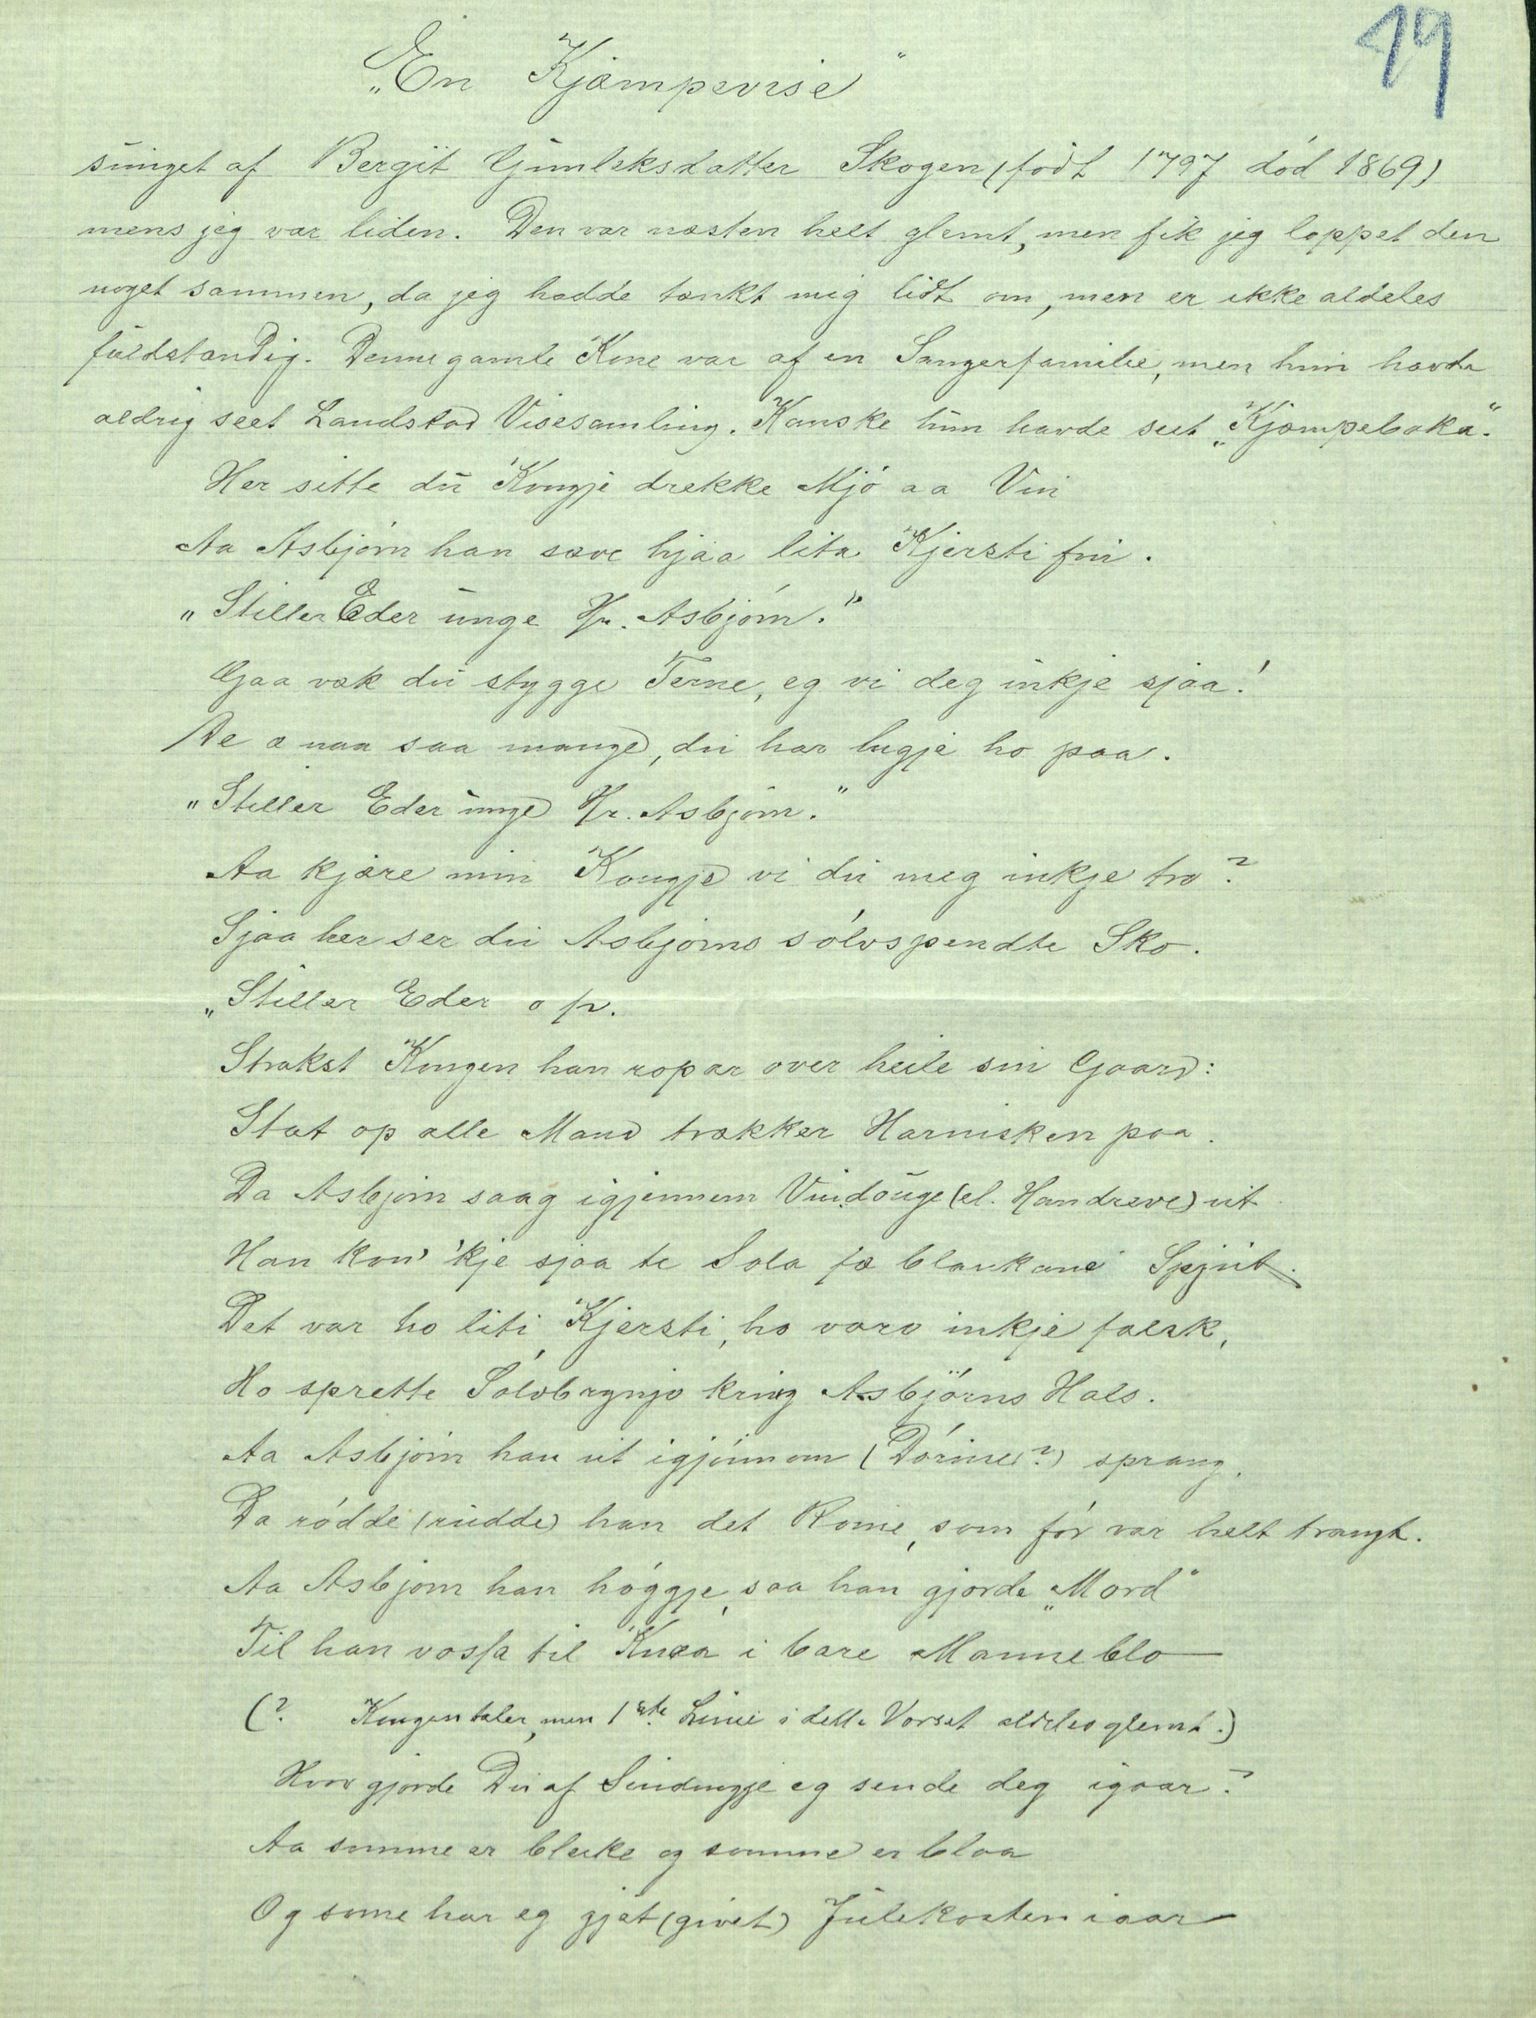 19
„En Kjæmpevise"
sunget af Bergit Gunleksdatter Skogen (født 1797 død 1869)
mens jeg var liden. Den var næsten helt glemt, men fik jeg loppet den
noget sammen, da jeg hadde tænkt mig lidt om, men er ikke aldeles
fuldstændig. Denne gamle Kone var af en Sangerfamilie, men hun havde
aldrig seet Landstad Visesamling. Kanske hun havde seet „Kjæmpeboka".
Her sitte du Kongje drekke Mjø aa Vin
Aa Asbjørn han sæve hjaa lita Kjersti fin.
„Stiller Eder unge Hr. Asbjørn."
Gaa væk du stygge Terne, eg vi deg inkje sjaa!
De æ naa saa mange, du har lugje ho paa.
„Stiller Eder unge Hr. Asbjørn."
Aa kjære min Kongje vi du meg inkje tro?
Sjaa her ser du Asbjørns sølvspendte Sko.
„Stiller Eder o fr.
Strakst Kongen han ropar over heile sin Gaard:
Stat op alle Mand trækker Harnisken paa.
Da Asbjørn saag igjennem Vindouge (el. Handreve) ut
Han kon' 'kje sjaa te Sola fæ blankane Spjut.
Det var ho liti Kjersti, ho varo inkje falsk,
Ho sprette Sølvbrynjo kring Asbjørns Hals.
Aa Asbjørn han ut igjønnom (Dørine?) sprang,
Da rødde (rudde) han det Rome, som før var helt trangt.
Aa Asbjørn han høggje, saa han gjorde „Mord"
Til han vossa til Knea i bare Manneblo
(? Kongen taler, men 1ste Linie i dette Verset aldeles glemt.)
Hvor gjorde Du af Sindungje eg sende deg igaar?
Aa somme er bleike og somme er blaa
Og some har eg gjet (givet) Julekosten iaar